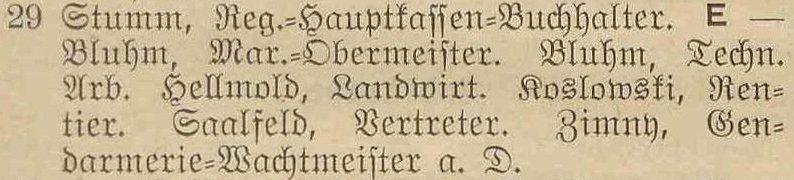 29 Stumm, Reg.-Hauptkassen-Buchhalter. E —
Bluhm, Mar.-Obermeister. Bluhm, Techn.
Arb. Hellmold, Landwirt. Koslowski, Ren-
tier. Saalfeld, Vertreter. Zimny, Gen-
darmerie-Wachtmeister a. D.